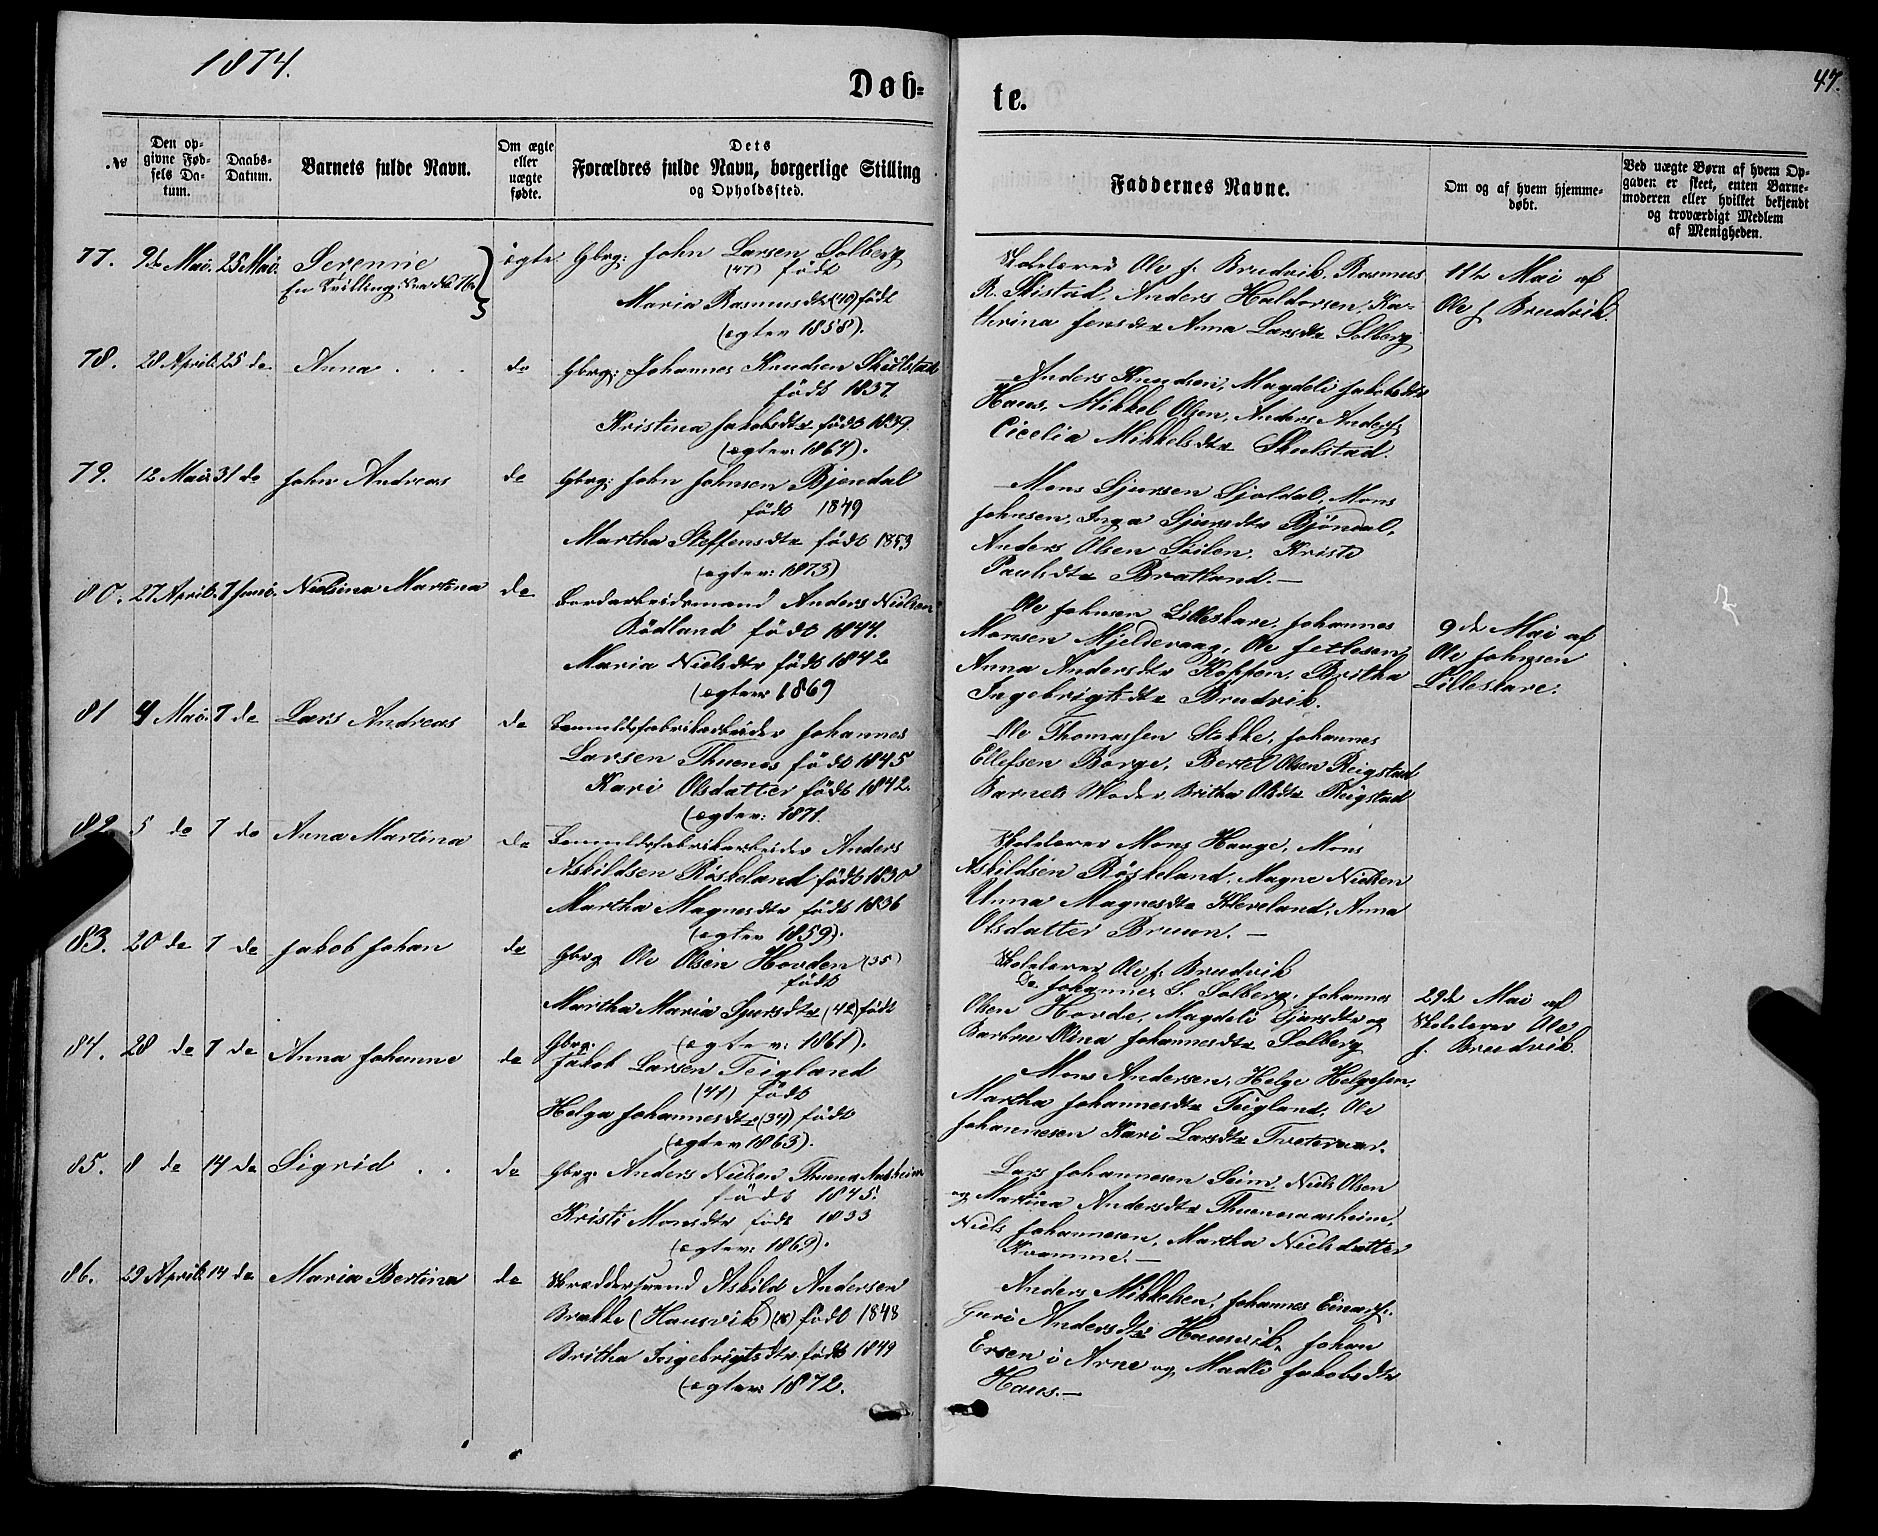 1874.
47.
Døb=
te.
No
Den op-
givne Fød-
sels Da-
tum.
Daabs-
Datum.
Barnets fulde Navn.
Om ægte
eller
uægte
fødte.
Dets
Forældres fulde Navn, borgerlige Stilling
og Opholdssted.
Faddernes Navne.
Om og af hvem hjemme-
døbt.
Ved uægte Børn af hvem Op-
gaven er skeet, enten Barne-
moderen eller hvilket bekjendt
og troværdigt Medlem
af Menigheden.
77. 9de Mai. 25 Mai. Serennie ægte Gbrg: John Larsen Solberg
En Tvilling (47) født
Maria Rasmusdtr født
(egtev 1858).
Skolelærer Ole J. Brudvik. Rasmus
R. Skistad, Anders Haldorsen, Ka-
thrina Jensdtr Anna Larsdtr Solberg
11te Mai af
Ole J Brudvik.
78. 28 April. 25 de Anna . . . do Gbrg: Johannes Knudsen Skulstad
født 1837.
Kristina Jakobsdtr født 1839.
(egtev: 1864).
Anders Knudsen, Magdeli Jakobsdtr
Haus, Mikkel Olsen, Anders Anders
Cicelia Mikkelsdtr Skulstad.
79. 12 Mai. 31 do John Andreas do Gbrg: John Johnsen Bjøndal
født 1849
Martha Steffensdtr født 1853
(egtev: 1873)
Mons Sjursen Sjoldal, Mons
Johnsen, Inga Sjursdtr Bjøndal,
Anders Olsen Søilen, Kristi
Paulsdtr Bratland.—
80. 27 April. 7 Juni. Nielsina Martina do Jordarbeidsmand Anders Nielsen
Rödland født 1844.
Maria Nielsdtr født 1842
(egtev 1869
Ole Johnsen Lilleskare, Johannes
Monsen Mjeldevaag, Ole
Anna Andersdtr Koppen, Britha
Ingebrigtsdtr Brudvik.
9de Mai af
Ole Johnsen
Lilleskare.
81 4 Mai. 7 de Lars Andreas do Bomuldsfabrikarbeider Johannes
Larsen Thunes født 1845
Kari Olsdatter født 1842.
(egtev: 1871.
Ole Thomassen Stokke, Johannes
Ellefsen Borge, Bertel Olsen Reigstad
Barnets Moder Britha Olsdtr Reigstad
82 5 do 7 do Anna Martina do Bomuldsfabrikarbeider Anders
Askildsen Röskeland født 1830
Martha Magnesdtr født 1836
(egtev 1859).
Skolelærer Mons Hauge, Mons
Askildsen Röskeland, Magne Nielsen
Unna Magnesdtr Kleveland, Anna
Olsdatter Bruun.—
83. 20 de 7 de Jakob Johan do Gbrg Ole Olsen Hovden (35)
født
Martha Maria Sjursdtr (42) født
(egtev: 1861).
Skolelærer Ole J. Brudvik
Do Johannes S. Solberg, Johannes
Olsen Hovde, Magdeli Sjursdtr og
Barbru Olina Johannesdtr Solberg
29de Mai af
Skolelærer Ole
J. Brudvik.
84. 28 de 7 de Anna Johanne do Gbrg:
Jakob Larsen Teigland
(41) født
Helga Johannesdtr (34) født
(egtev 1863).
Mons Andersen, Helge Helgesen,
Martha Johannesdtr Teigland, Ole
Johannesen Kari Larsdtr Tveteraas.
85. 8 de 14 de Sigrid . . do Gbrg: Anders Nielsen Thunes Aasheim
født 1845.
Kristi Monsdtr født 1833
(egtev: 1869).
Lars Johannesen Seim, Niels Olsen
og Martina Andersdtr Thunesaasheim,
Niels Johannesen, Martha Nielsdatter
Kramme.—
86. 29 April. 14 de Maria Bertina do Skreddersvend Askild Andersen
Brække (Hausvik) født 1848
Britha Ingebrigtsdtr født 1849
(egtev: 1872.
Anders Mikkelsen, Johannes Einars
Guri Andersdtr Hausvik, Johan
Ersen i Arne og Madli Jakobsdtr
Haus.—